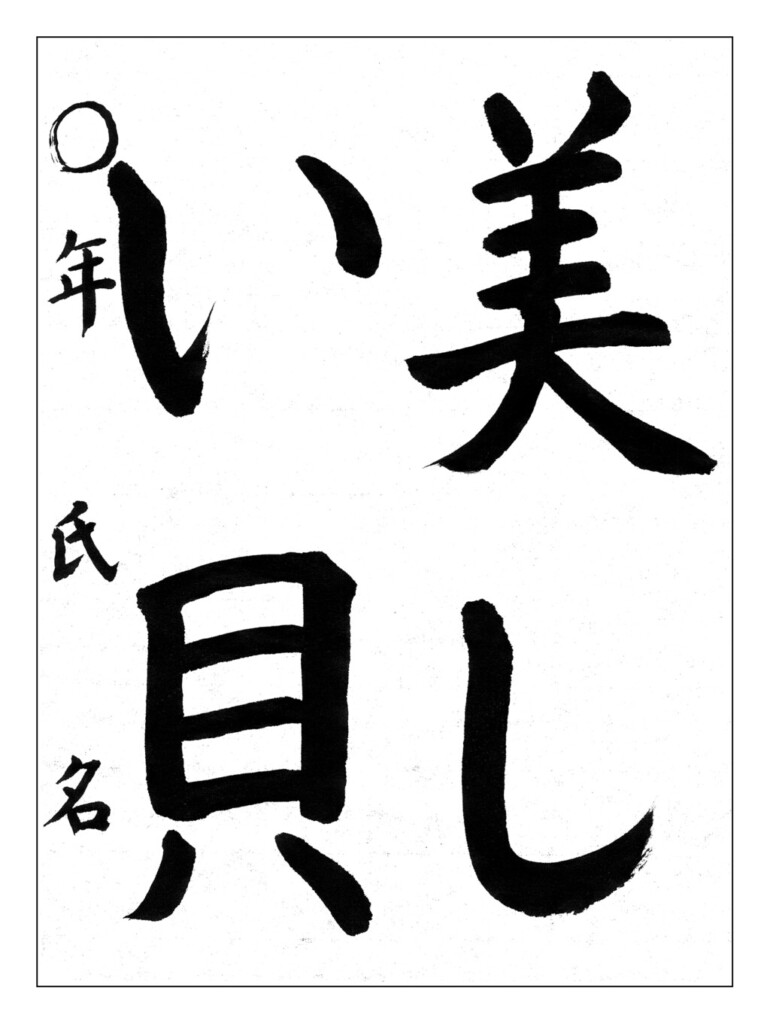 美し
い貝
〇年 氏名